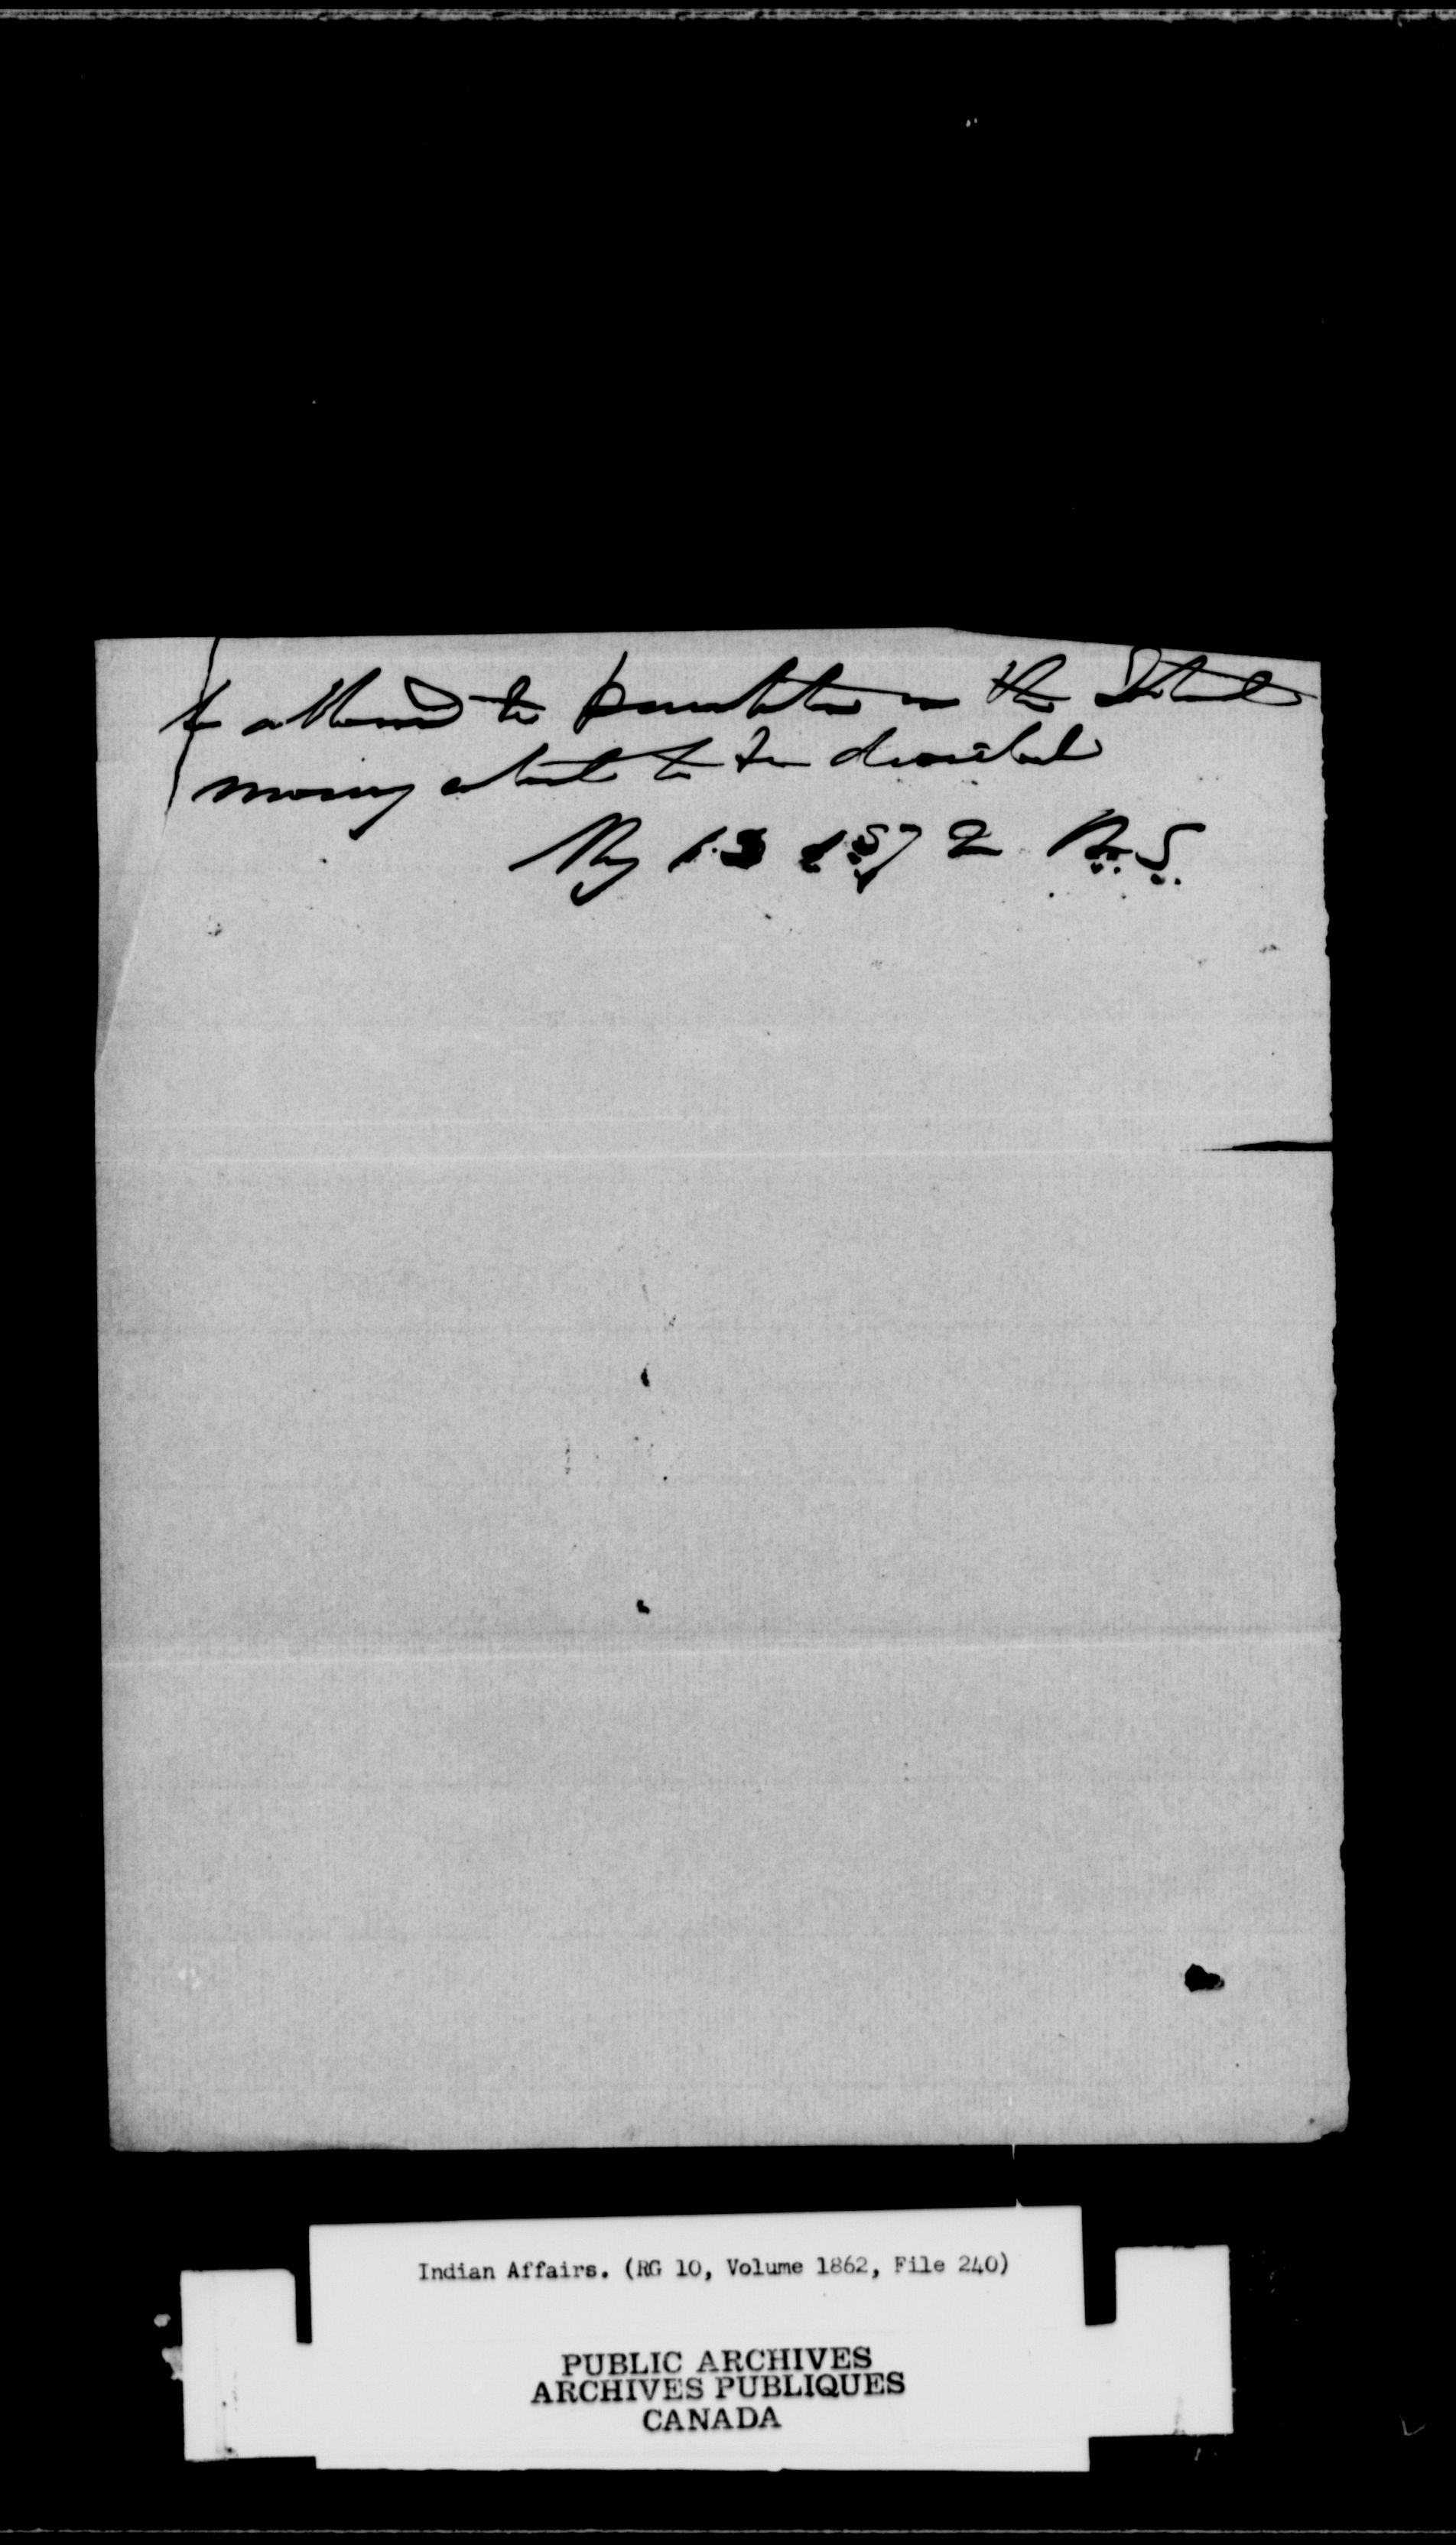 be allowed to participate in the
money about to be
My 13 1872 R.S.
Indian Affairs. (RG 10, Volume 1862, File 240)
PUBLIC ARCHIVES
ARCHIVES PUBLIQUES
CANADA